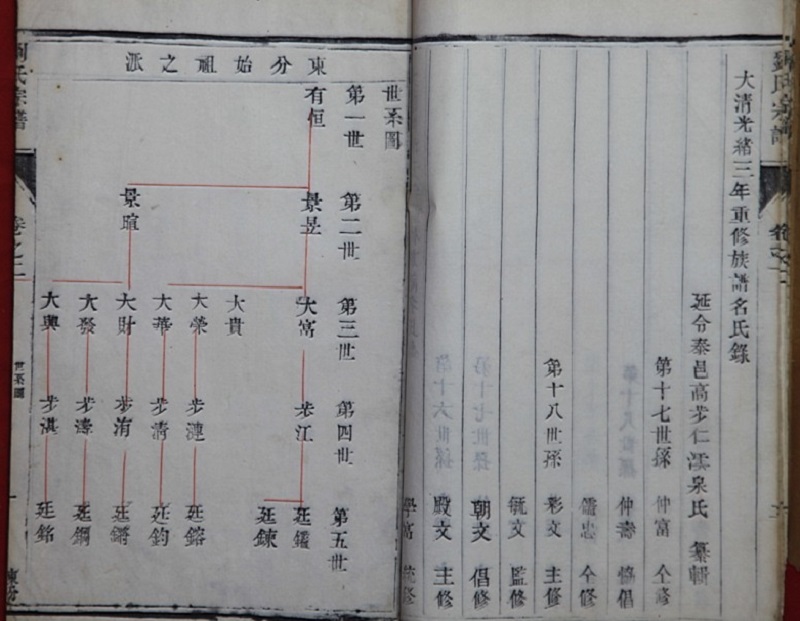 大清光緒三年重修族譜名氏錄
延令泰邑高步仁澐泉氏 纂輯
第十七世孫 仲富 仝修
仲壽 協倡
儒忠 仝修
第十八世孫 彩文 主修
毓文 監修
朝文 倡修
殿文 主修
學高
東分始祖之派
世系圖
第一世
有恒
第二世
景昱
景暄
第三世
大富
大貴
大榮
大華
大財
大發
大興
第四世
步江
步漣
步清
步洧
步濤
步湛
第五世
廷鑑
廷鍊
廷鎔
廷鈞
廷鏘
廷鋼
廷銘
劉氏宗譜
卷之二
世系圖